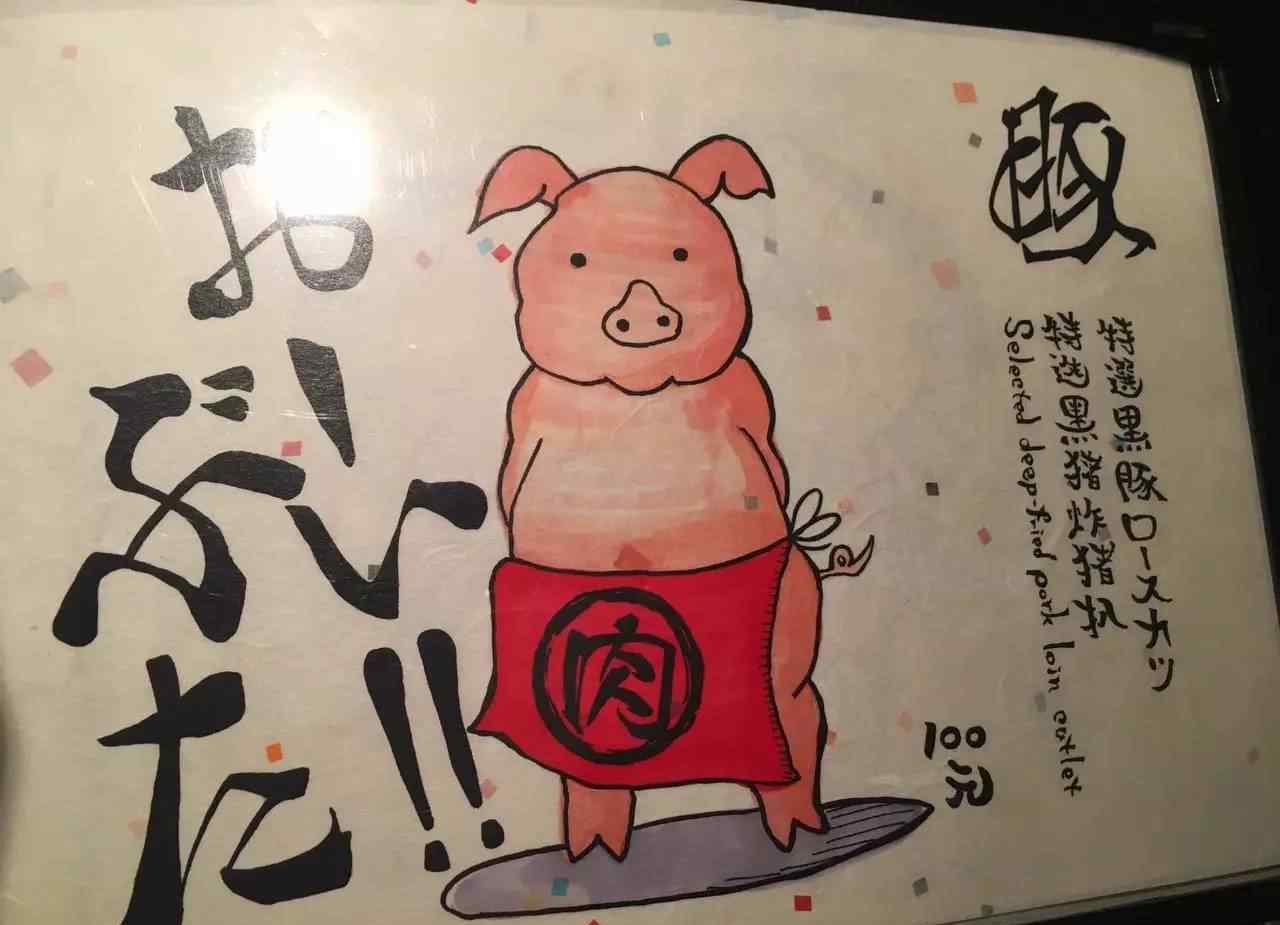 豚
特選黒豚ロースカツ
特选黑猪炸猪扒
Selected deep-fried pork loin cutlet
100
肉
おーい!!
ぶた